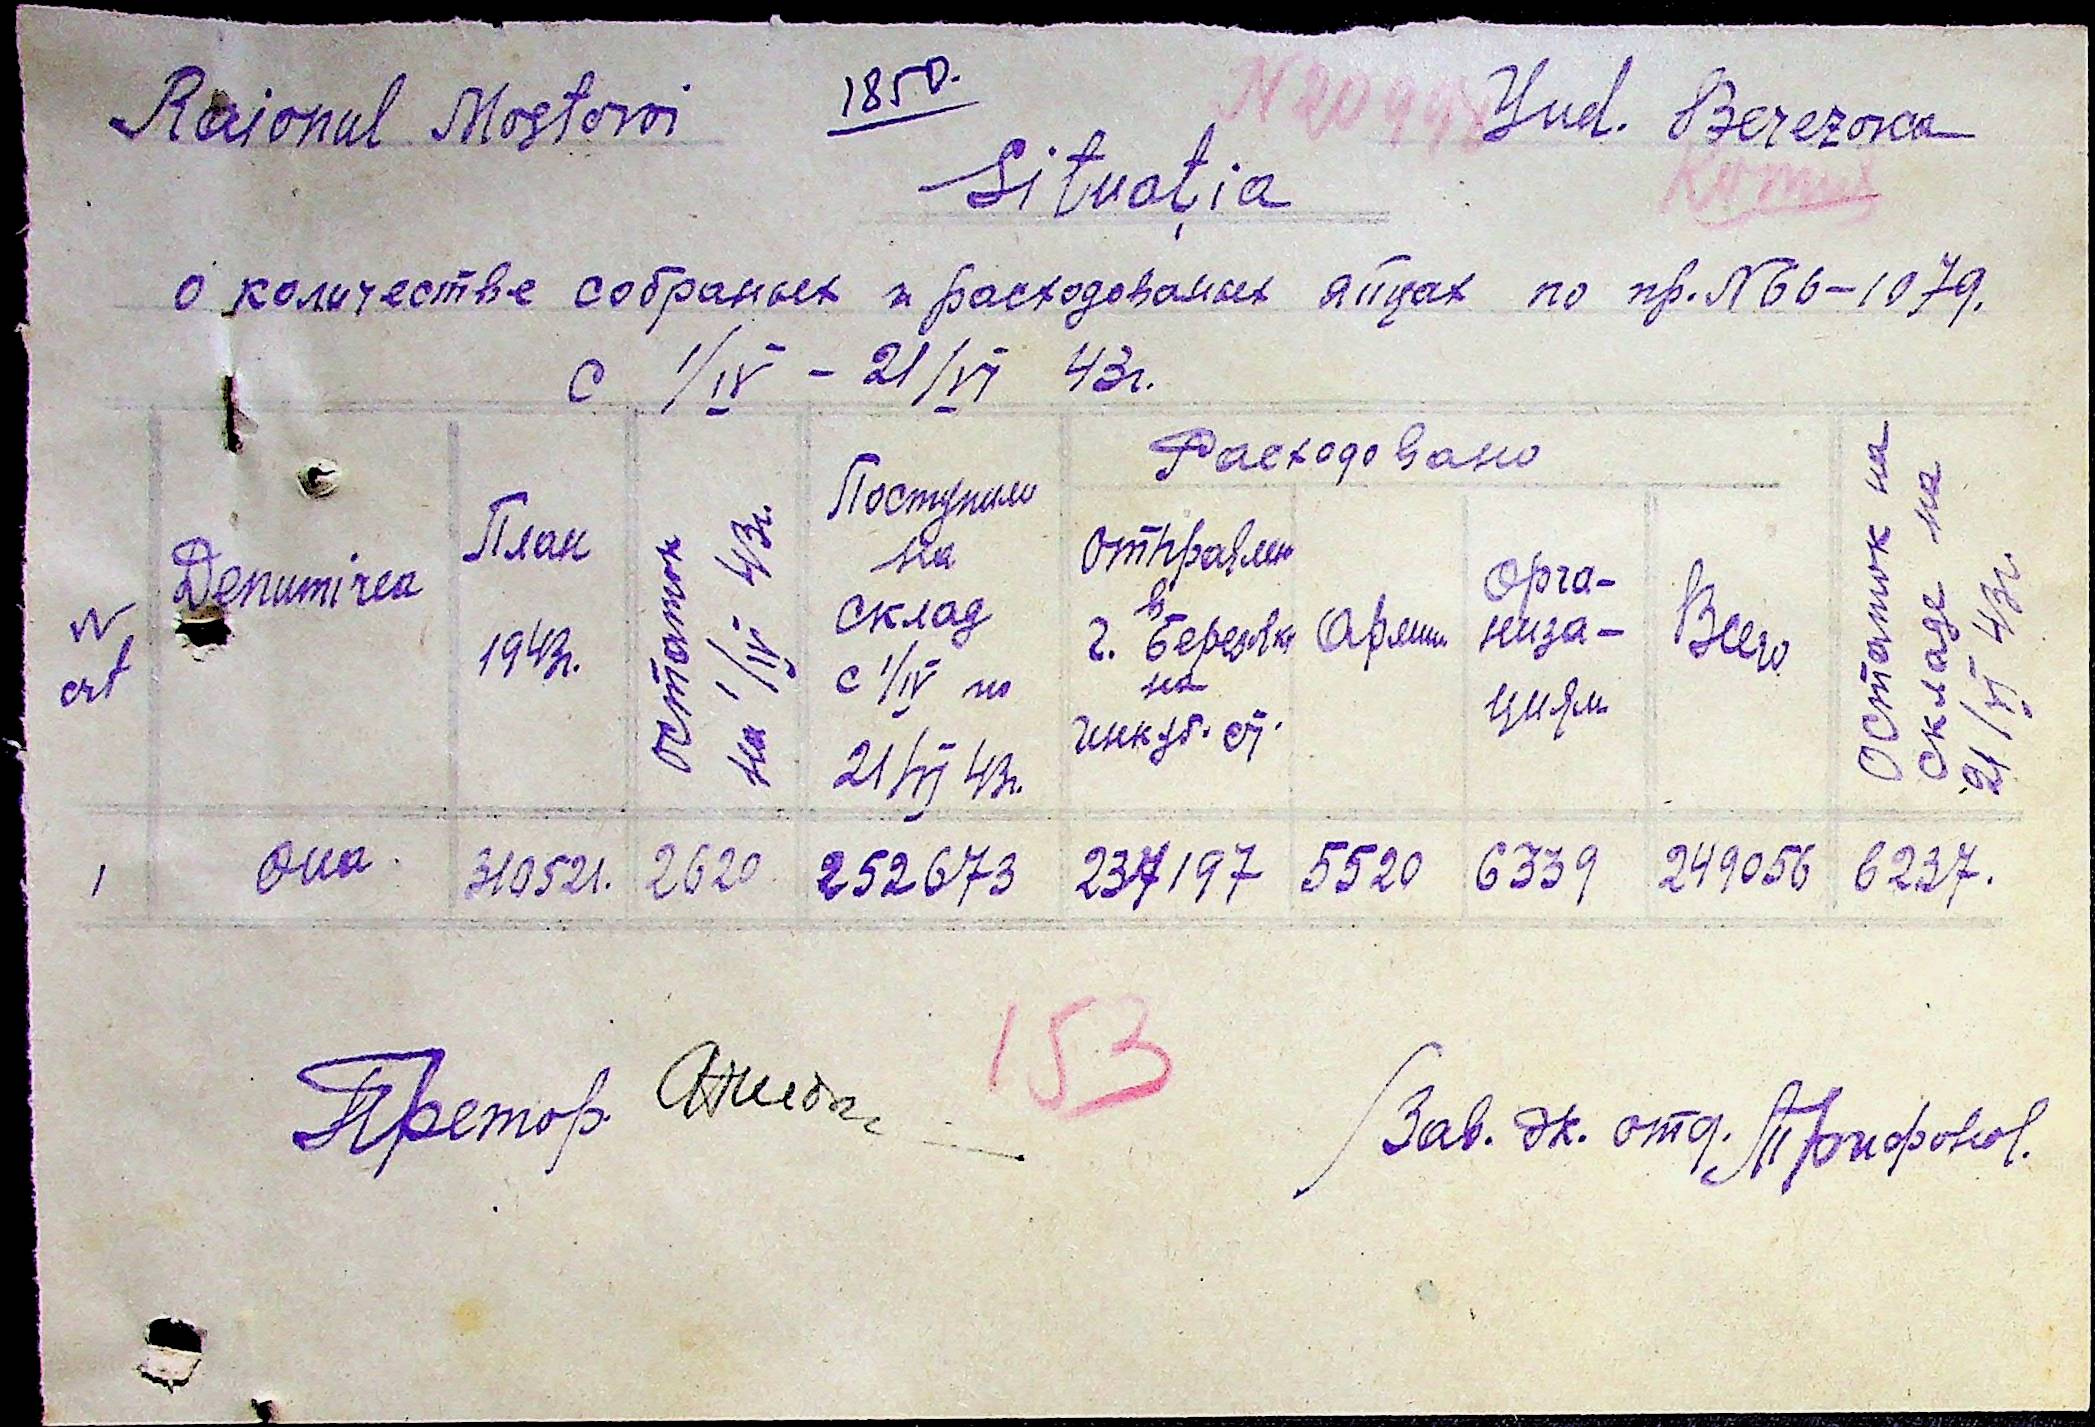 Raionul Mostovoi 1850. N 20998 Jud. Berezovca
Situaţia
о количестве собраных и расходованых яйцах по пр. N 66-1079.
с 1/IV - 21/VI 43г.
N crt
Denumirea
План 1943г.
остаток на 1/IV 43г.
Поступило на склад с 1/IV по 21/VI 43г.
Расходовано
отправлен в г. Березовка на инкуб. ст.
Армии
Орга-
низа-
циям
Всего
Остаток на складе на 21/VI 43г.
1 Оиа. 310521. 2620 252673 237197 5520 6339 249056 6237.
153
Претор
Зав. эк. отд. Трифонов.